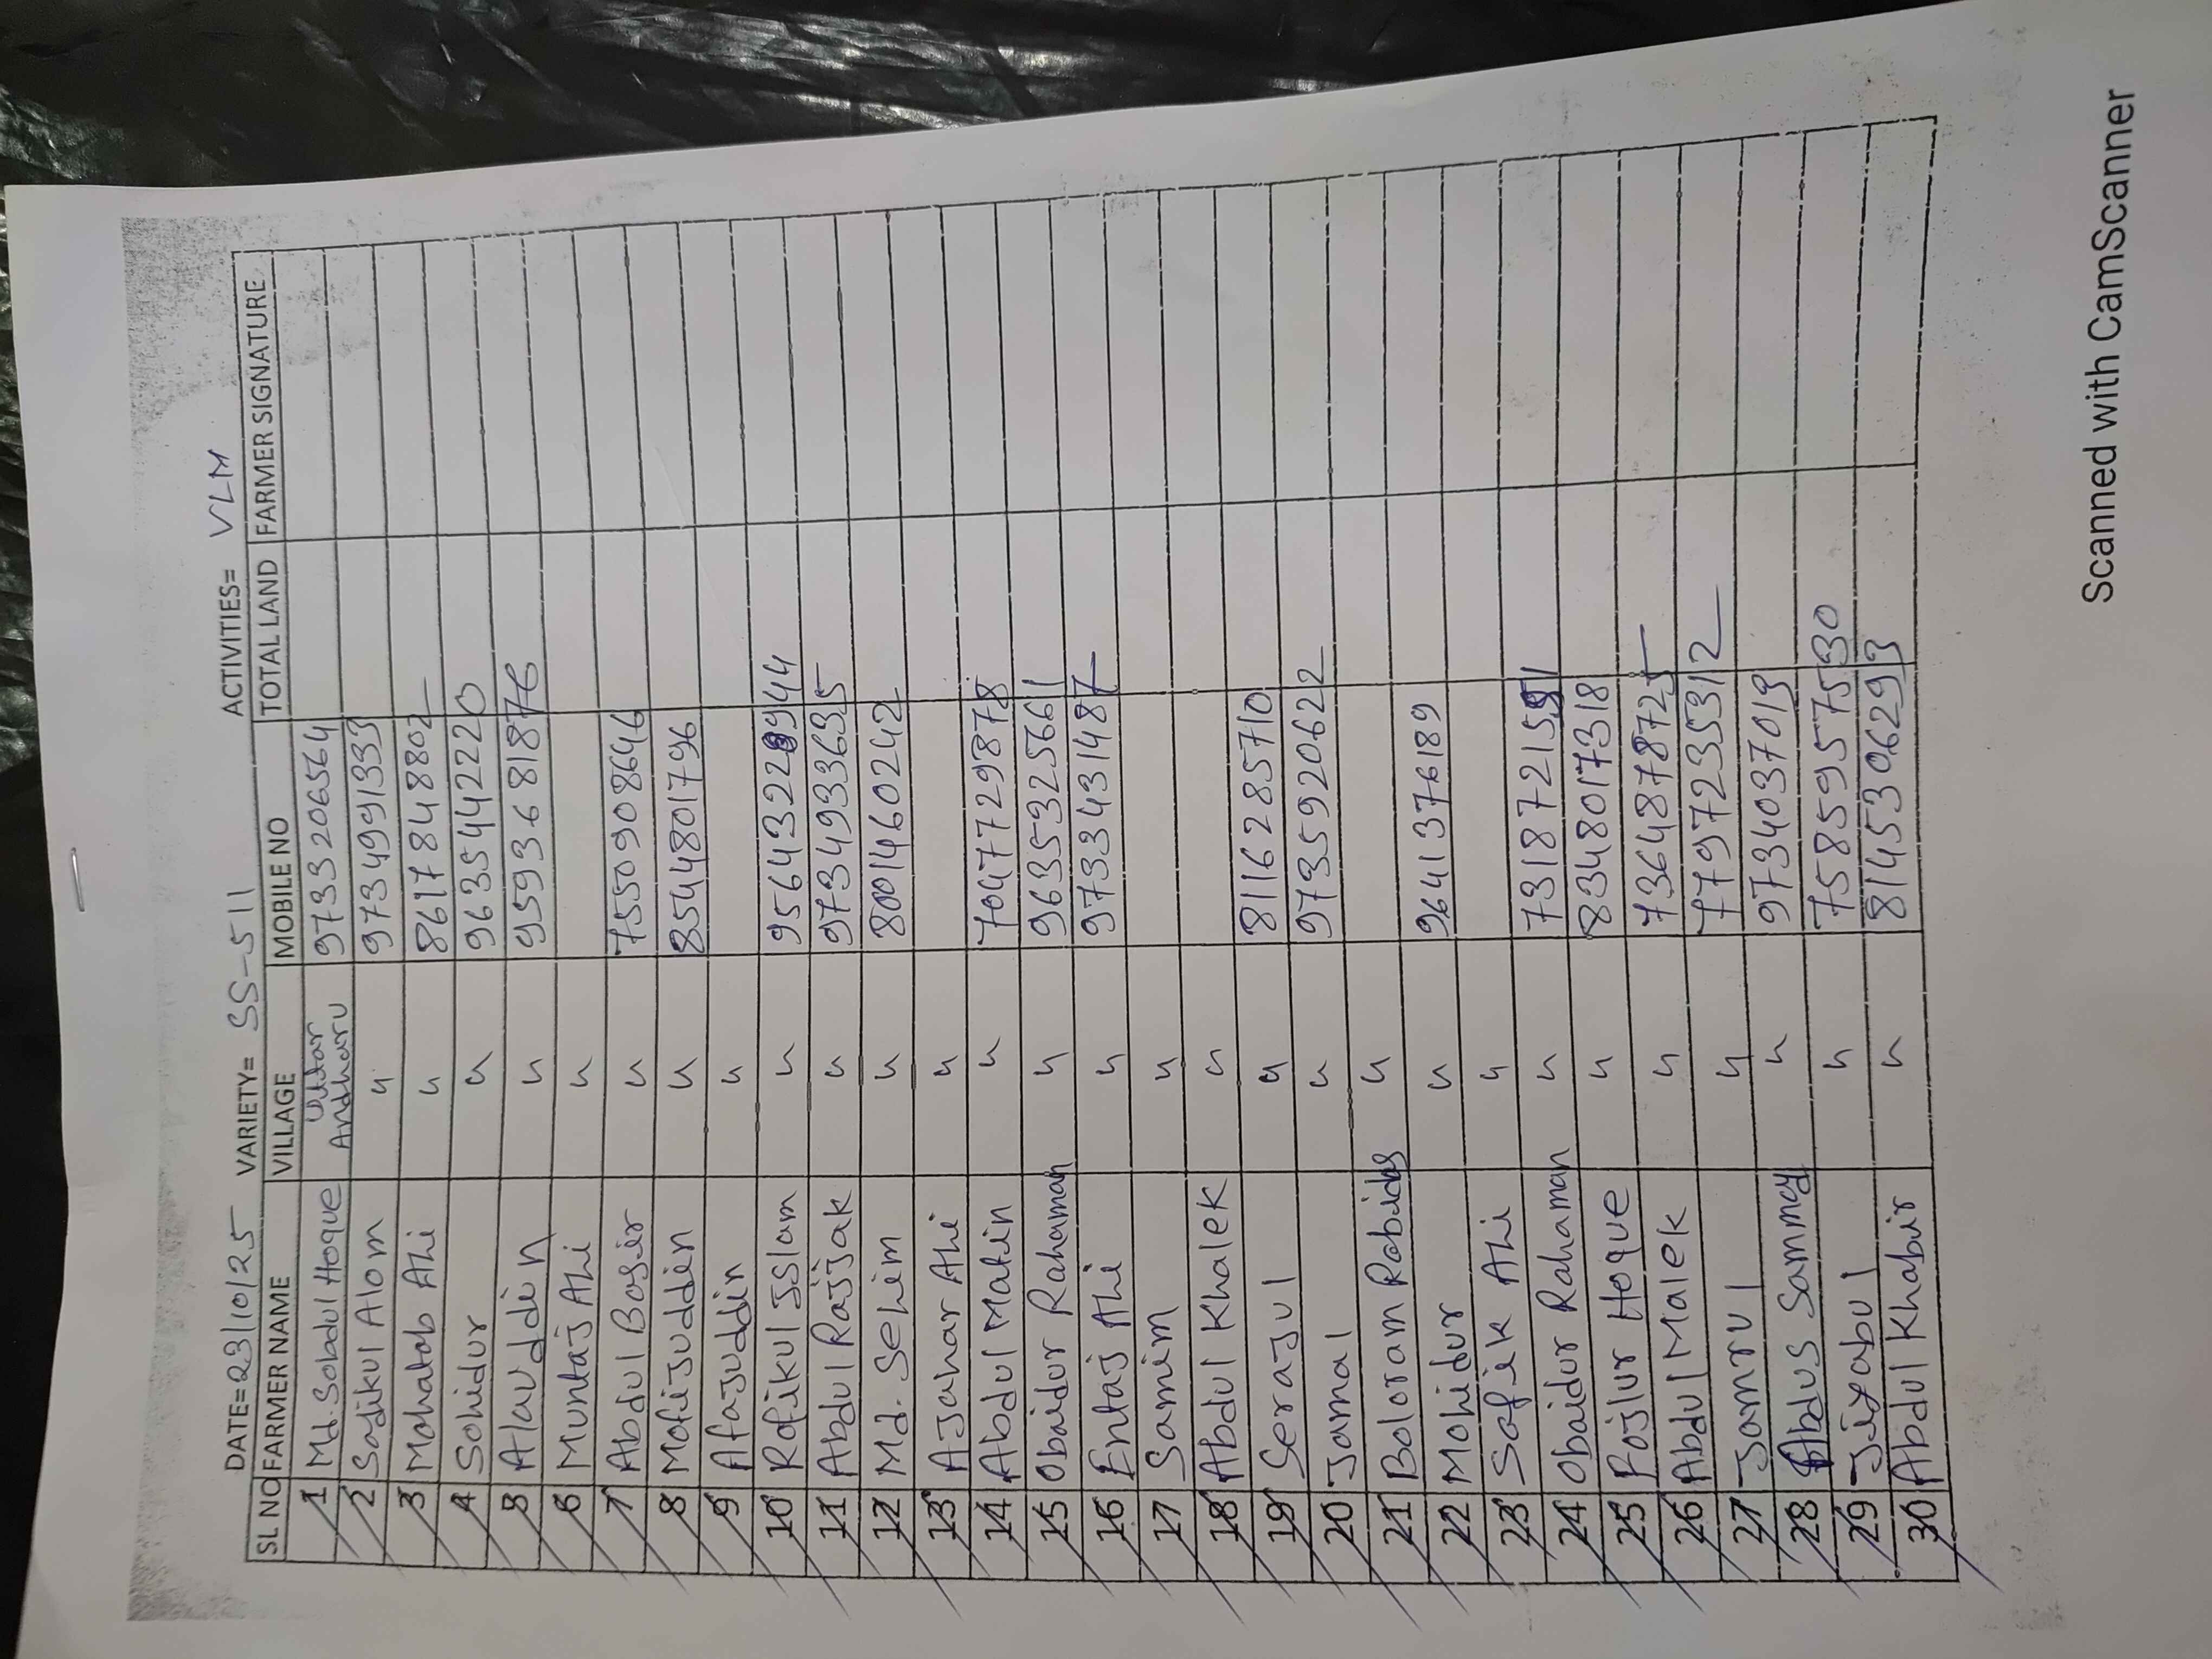 DATE=23/10/25 VARIETY= SS-511 ACTIVITIES= VLM
SL NO FARMER NAME VILLAGE MOBILE NO TOTAL LAND FARMER SIGNATURE
1 Md. Sobdul Hoque Uttar Andharu 9733206564
2 Sadikul Alom " 9734991333
3 Mohatab Ali " 8617848802
4 Sohidur " 9635442220
5 Alauddin " 9593681876
6 Muntaj Ali "
7 Abdul Bosir " 7550908646
8 Mofijuddin " 8544801796
9 Afajuddin "
10 Rofikul Islam " 9564322944
11 Abdul Rajjak " 9734933635
12 Md. Selim " 8001460242
13 Ajahar Ali "
14 Abdul Matin " 7047729878
15 Obaidur Rahaman " 9635325661
16 Entaj Ali " 9733431487
17 Samim "
18 Abdul Khalek "
19 Serajul " 8116285710
20 Jamal " 9735920622
21 Boloram Robidas "
22 Mohidur " 9641376189
23 Sofik Ali "
24 Obaidur Rahaman " 7318721551
25 Pojlur Hoque " 8348017318
26 Abdul Malek " 7364878725
27 Jamrul " 7797235312
28 Abdus Sammad " 9734037013
29 Jiyabul " 7585957530
30 Abdul Khabir " 8145306293
Scanned with CamScanner